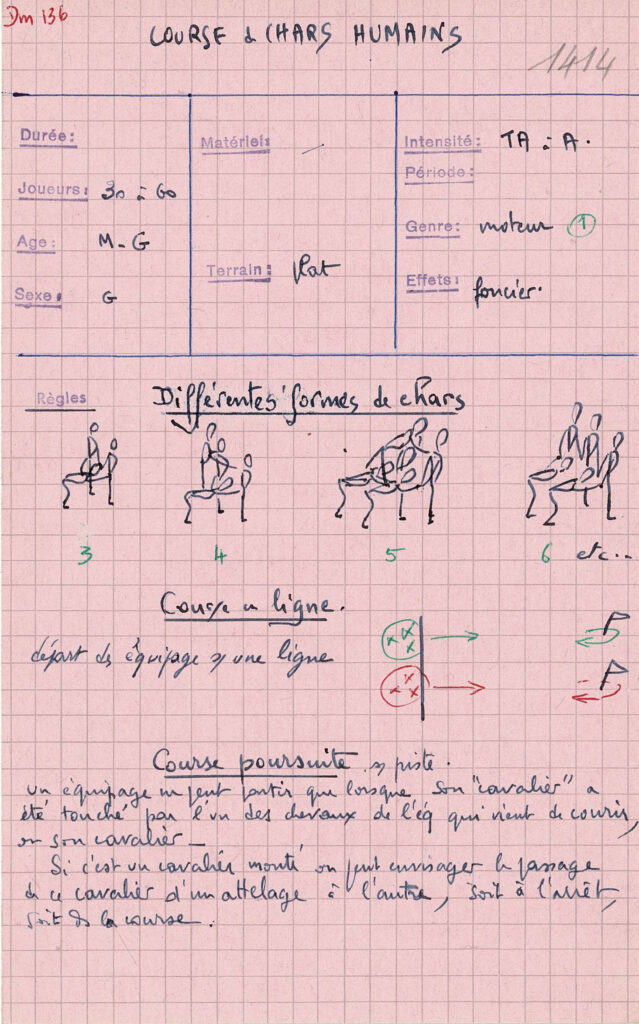 Dm 136
COURSE d CHARS HUMAINS
1414
Durée:
Joueurs: 30 à 60
Age: M - G
Sexe: G
Matériel: /
Terrain: Plat
Intensité: TA à A.
Période:
Genre: moteur 1
Effets: foncier.
Règles
Différentes formes de chars
3 4 5 6 etc...
Course en ligne.
départ des équipage s/ une ligne
Course poursuite s/ piste.
un équipage ne peut partir que lorsque son "cavalier" a
été touché par l'un des chevaux de l'éq qui vient de courir,
ou son cavalier _
Si c'est un cavalier monté on peut envisager le passage
de ce cavalier d'un attelage à l'autre, soit à l'arrêt,
soit ds la course.